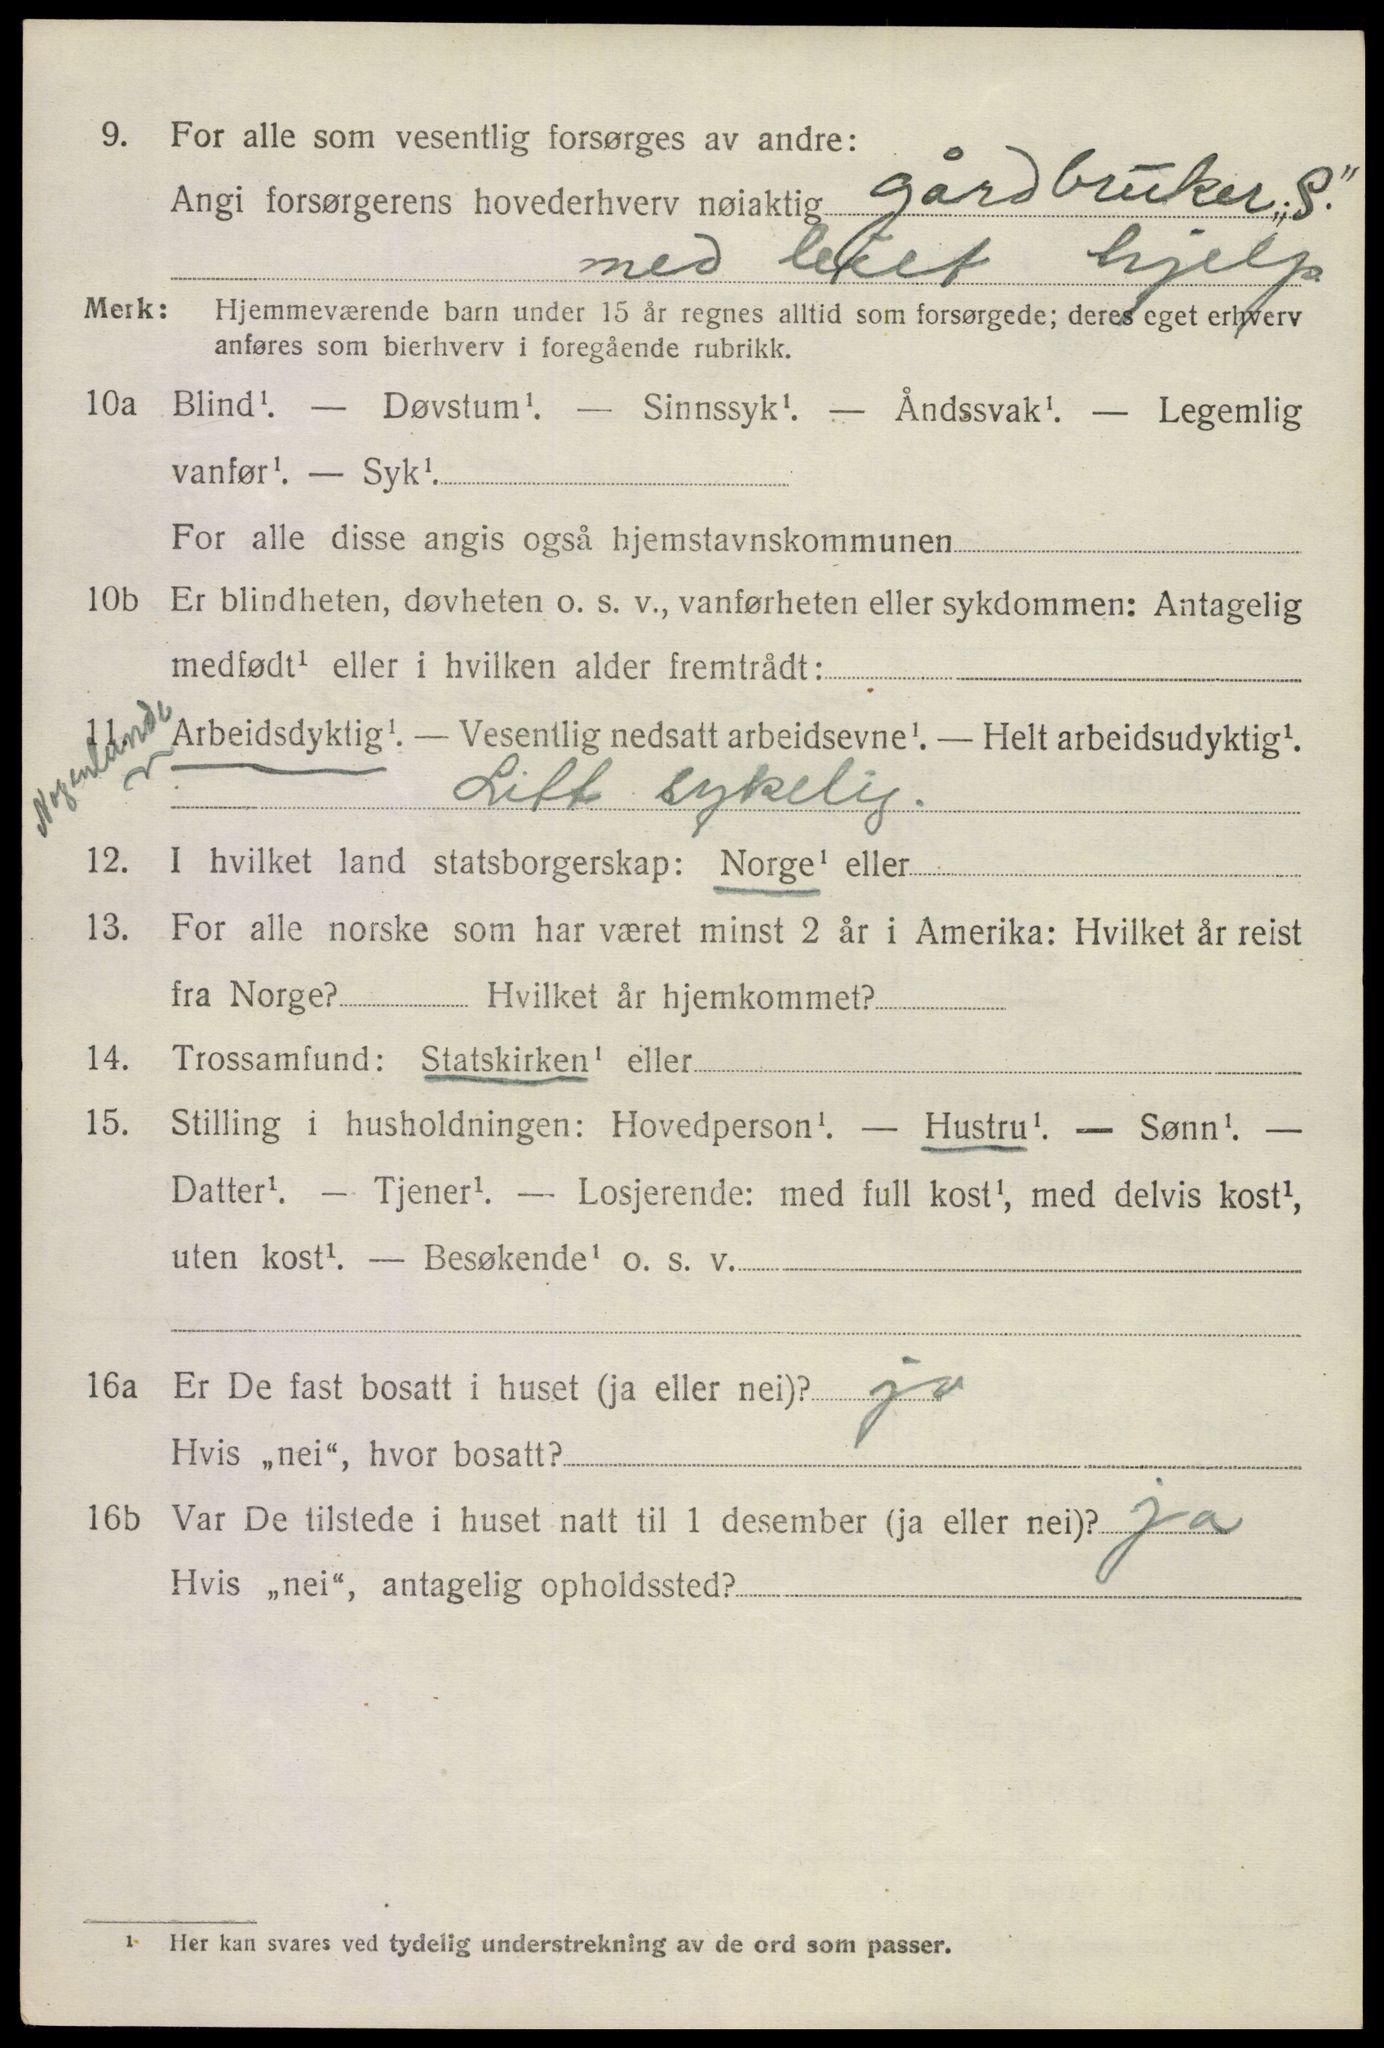 9. For alle som vesentlig forsørges av andre:
Angi forsørgerens hovederhverv nøiaktig gårdbruker „S."
med leiet hjelp
Merk: Hjemmeværende barn under 15 år regnes alltid som forsørgede; deres eget erhverv
anføres som bierhverv i foregående rubrikk.
10a Blind¹. — Døvstum¹. — Sinnssyk¹. — Åndssvak¹. — Legemlig
vanfør¹. — Syk¹.
For alle disse angis også hjemstavnskommunen
10b Er blindheten, døvheten o. s. v., vanførheten eller sykdommen: Antagelig
medfødt¹ eller i hvilken alder fremtrådt:
Nogenlunde
11. Arbeidsdyktig¹. — Vesentlig nedsatt arbeidsevne¹. — Helt arbeidsudyktig¹.
Litt sykelig.
12. I hvilket land statsborgerskap: Norge¹ eller
13. For alle norske som har været minst 2 år i Amerika: Hvilket år reist
fra Norge? Hvilket år hjemkommet?
14. Trossamfund: Statskirken¹ eller
15. Stilling i husholdningen: Hovedperson¹. — Hustru¹. — Sønn¹. —
Datter¹. — Tjener¹. — Losjerende: med full kost¹, med delvis kost¹,
uten kost¹. — Besøkende¹ o. s. v.
16a Er De fast bosatt i huset (ja eller nei)? ja
Hvis „nei“, hvor bosatt?
16b Var De tilstede i huset natt til 1 desember (ja eller nei)? ja
Hvis „nei“, antagelig opholdssted?
¹ Her kan svares ved tydelig understrekning av de ord som passer.